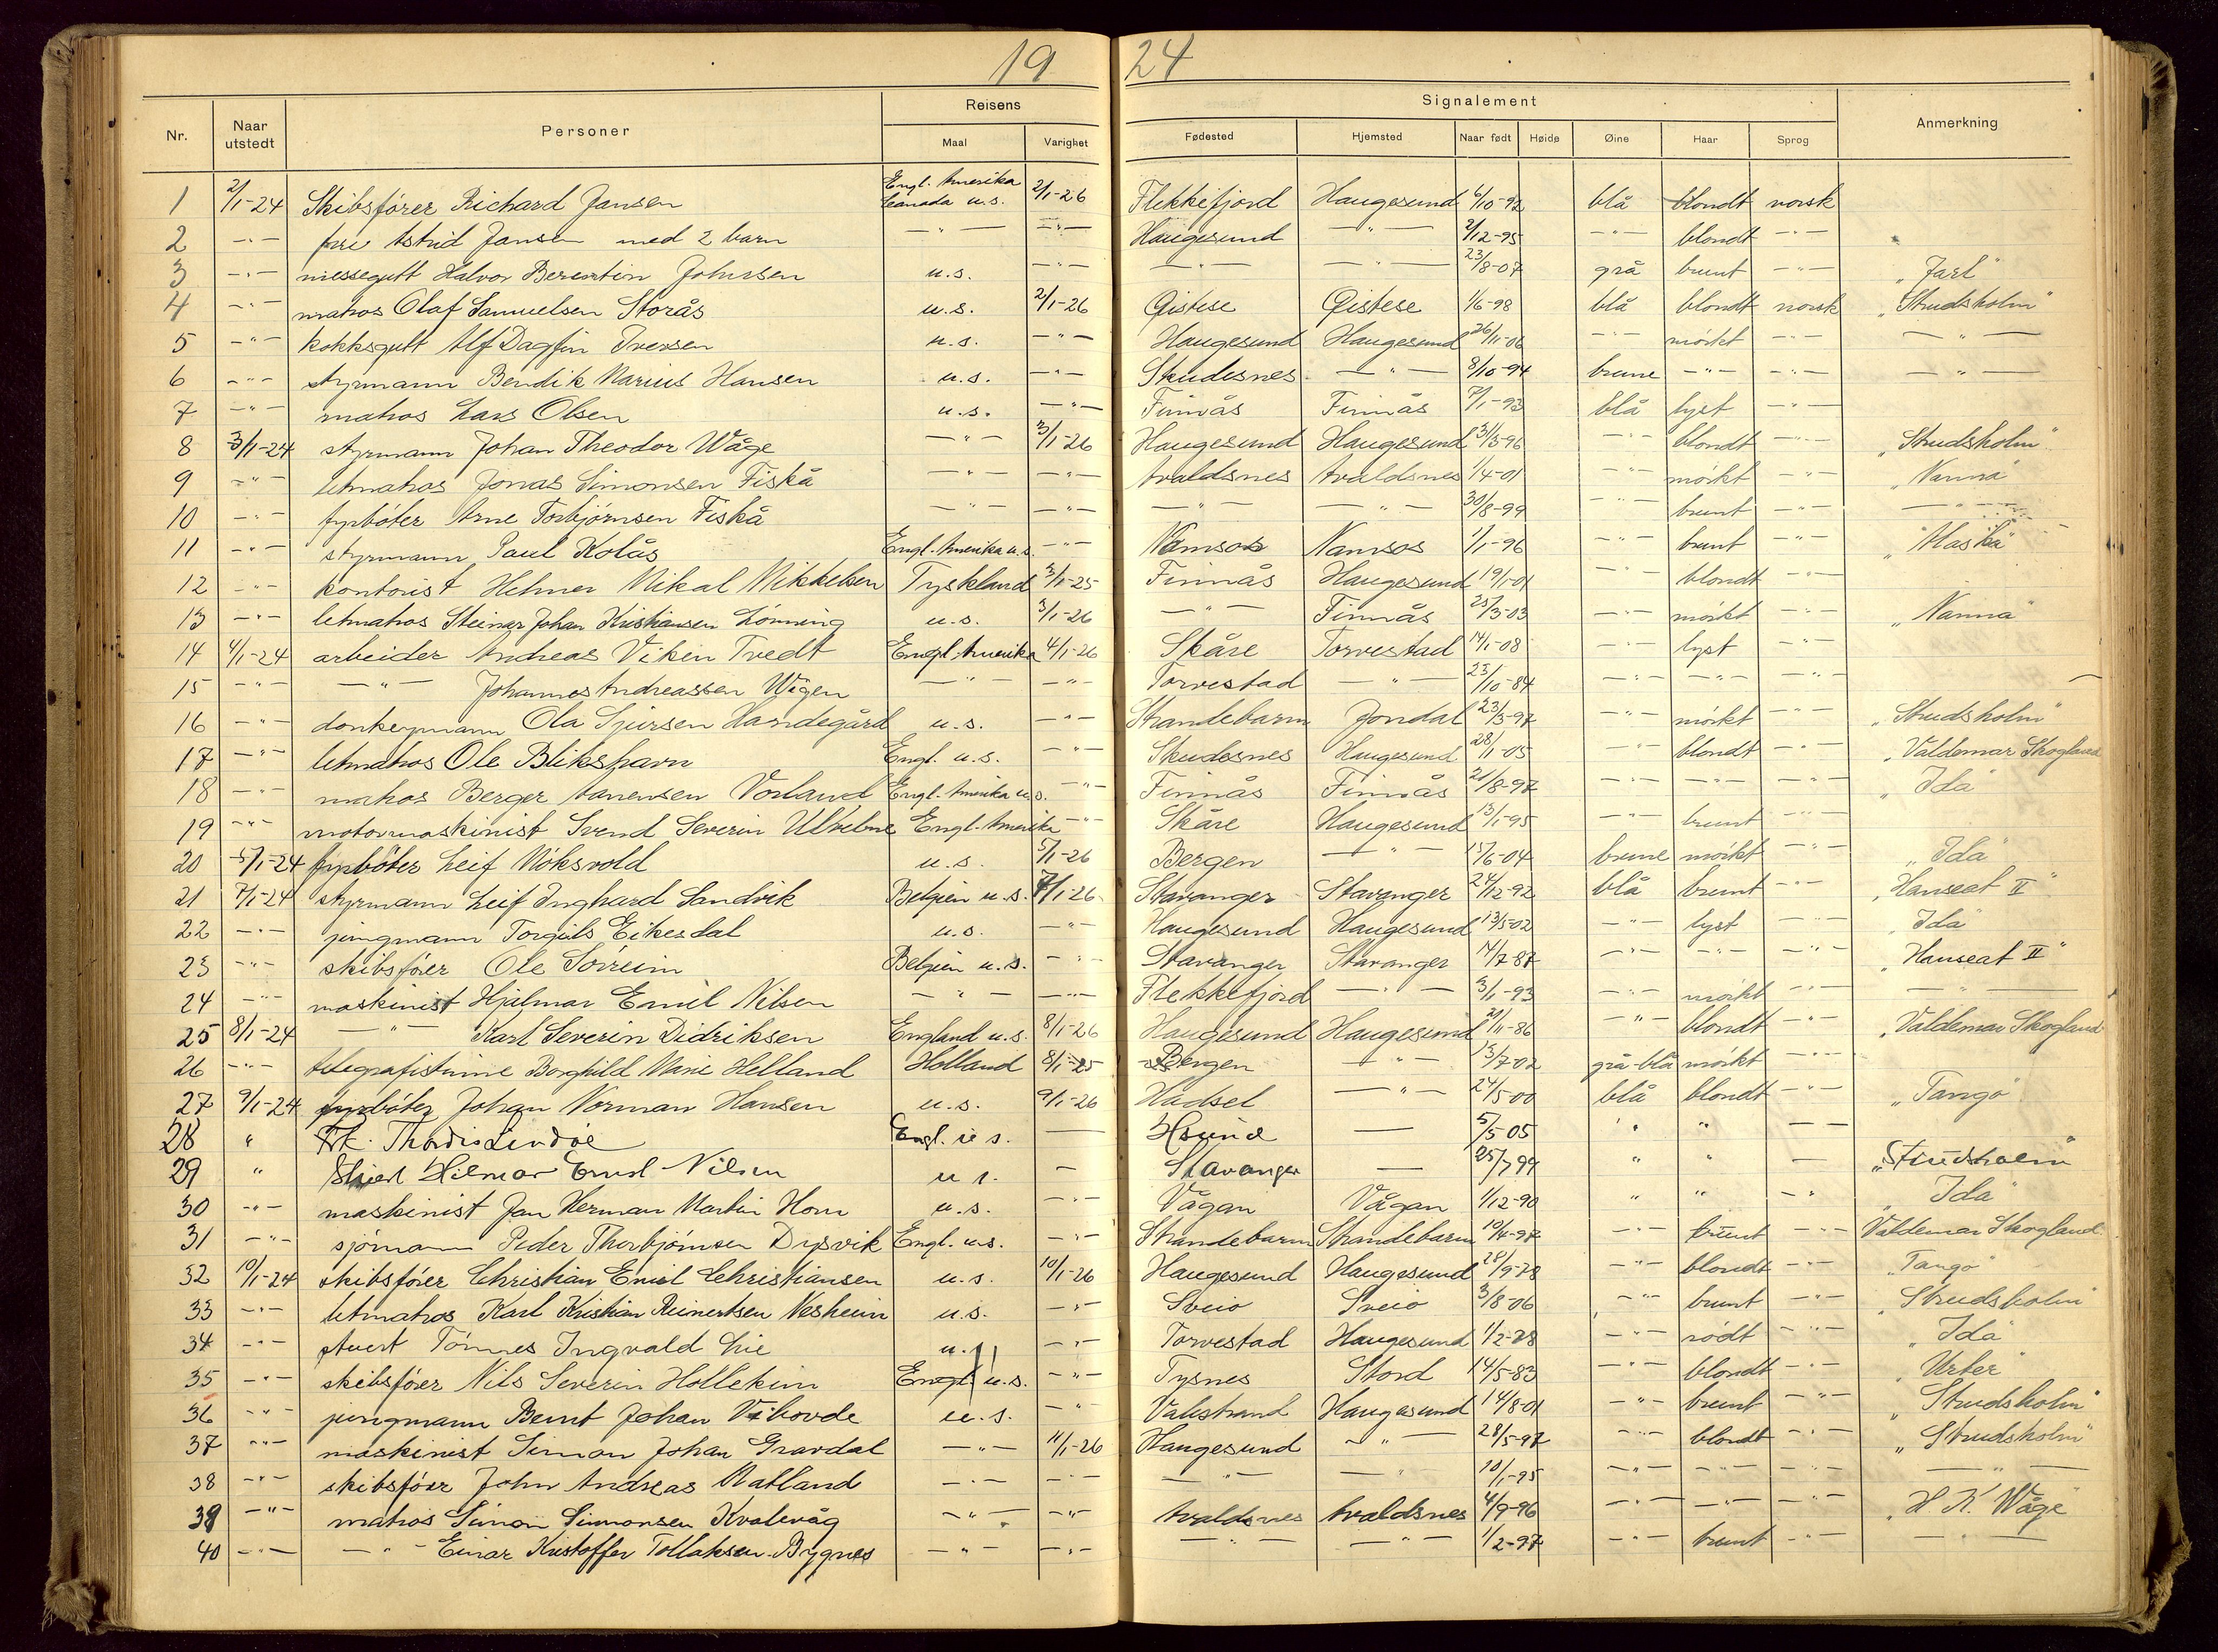 19 24
Nr. Naar utstedt Personer Reisens Maal Varighet Signalement Fødested Hjemsted Naar født Høide Øine Haar Sprog Anmerkning
1 2/1-24 Skibsfører Richard Jansen Engl. Amerika Canada u.s. 2/1-26 Flekkefjord Haugesund 6/10-92 blå blondt norsk
2 -"- fru Astrid Jansen med 2 barn -"- -"- Haugesund -"- 2/12-95 -"- blondt -"-
3 -"- messegutt Halvor Berentin Johnsen u.s. -"- -"- -"- 23/8-07 grå brunt -"- "Jarl"
4 -"- matros Olaf Samuelsen Storås u.s. 2/1-26 Øistese Øistese 1/6-98 blå blondt norsk "Strudsholm"
5 -"- kokksgutt Alf Dagfin Iversen u.s. -"- Haugesund Haugesund 26/11-06 -"- mörkt -"- -"-
6 -"- styrmann Bendik Marius Hansen u.s. -"- Skudesnes -"- 8/10-94 brune -"- -"- -"-
7 -"- matros Lars Olsen u.s. -"- Finnås Finnås 7/1-93 blå lyst -"-
8 3/1-24 styrmann Johan Theodor Wåge -"- 3/1-26 Haugesund Haugesund 31/3-96 -"- blondt -"- "Strudsholm"
9 -"- letmatros Jonas Simonsen Fiskå -"- -"- Avaldsnes Avaldsnes 1/4-01 -"- mörkt -"- "Nanna"
10 -"- fyrböter Arne Torbjörnsen Fiskå -"- -"- -"- -"- 30/8-99 -"- brunt -"- -"-
11 -"- styrmann Paul Kolås Engl. Amerika u.s. -"- Namsos Namsos 1/1-96 -"- brunt -"- "Alaska"
12 -"- kontorist Helmer Mikal Mikkelsen Tyskland 3/1-25 Finnås Haugesund 19/1-01 -"- blondt -"-
13 -"- letmatros Steinar Johan Kristiansen Lönning u.s. 3/1-26 -"- Finnås 25/3-03 -"- mörkt -"- "Nanna"
14 4/1-24 arbeider Andreas Viken Tvedt Engl. Amerika 4/1-26 Skåre Torvestad 14/1-08 -"- lyst -"-
15 -"- -"- Johannes Andreassen Wigen -"- -"- Torvestad -"- 23/10-84 -"- -"- -"-
16 -"- donkeymann Ola Sjursen Handegård u.s. -"- Strandebarm Jondal 23/3-97 -"- mörkt -"- "Strudsholm"
17 -"- letmatros Ole Blikshavn Engl. u.s. -"- Skudesnes Haugesund 28/1-05 -"- blondt -"- "Valdemar Skogland
18 -"- matros Berger Vorland Engl. Amerika u.s. -"- Finnås Finnås 20/8-97 -"- -"- -"- "Ida"
19 -"- motormaskinist Svend Severin Engl. Amerika -"- Skåre Haugesund 13/1-95 -"- brunt -"-
20 5/1-24 fyrböter Leif Möksvold u.s. 5/1-26 Bergen -"- 15/6-04 brune mörkt -"- "Ida"
21 7/1-24 styrmann Leif Inghard Sandvik Belgien u.s. 7/1-26 Stavanger Stavanger 24/12-92 blå brunt -"- "Hanseat II"
22 -"- jungmann Torgils Eikesdal u.s. -"- Haugesund Haugesund 13/5-02 -"- lyst -"- "Ida"
23 -"- skibsfører Ole Sörreim Belgien u.s. -"- Stavanger Stavanger 14/7-87 -"- -"- -"- "Hanseat II"
24 -"- maskinist Hjalmar Emil Nilsen -"- -"- Flekkefjord -"- 3/1-93 -"- mörkt -"- -"-
25 8/1-24 -"- Karl Severin Didriksen England u.s. 8/1-26 Haugesund Haugesund 2/11-86 -"- blondt -"- "Valdemar Skogland
26 -"- telegrafistinne Borghild Marie Helland Holland 8/1-25 Bergen -"- 13/7-02 grå-blå mörkt -"-
27 9/1-24 fyrböter Johan Norman Hansen u.s. 9/1-26 Hadsel -"- 24/5-00 blå blondt -"- "Tango"
28 " Frk. Thordis Lindöe Engl. u s. — Hsund — 5/5 05 " " —
29 " Stuert Hilmar Ernst Nilsen u s. — Stavanger — 25/7 99 " " — "Strudsholm
30 -"- maskinist Jan Herman Martin Horn u.s. -"- Vågan Vågan 1/12-90 " " -"- "Ida"
31 -"- sjömann Peder Thorbjörnsen Dysvik Engl. u.s. -"- Strandebarm Strandebarm 10/4-97 -"- brunt -"- Valdemar Skogland
32 10/1-24 skibsfører Christian Emil Christiansen u.s. 10/1-26 Haugesund Haugesund 28/9-78 -"- blondt -"- "Tango"
33 -"- letmatros Karl Kristian Reinertsen Nesheim u.s. -"- Sveio Sveio 3/8-06 -"- brunt -"- "Strudsholm"
34 -"- stuert Tönnes Ingvald Lie u.s. -"- Torvestad Haugesund 1/2-78 -"- rödt -"- "Ida"
35 -"- skibsfører Nils Severin Hollekim Engl. u.s. -"- Tysnes Stord 14/5-83 -"- blondt -"- "Urter"
36 -"- jungmann Bernt Johan Vibovde u.s. -"- Valestrand Haugesund 14/8-01 -"- brunt -"- "Strudsholm"
37 -"- maskinist Simon Johan Gravdal -"- 11/1-26 Haugesund -"- 28/5-97 -"- blondt -"- "Strudsholm"
38 -"- skibsfører John Andreas Matland -"- -"- -"- -"- 10/1-95 -"- -"- -"- -"-
39 -"- matros Simon Simonsen Kvalevåg -"- -"- Avaldsnes Avaldsnes 4/9-96 -"- -"- -"- "H K. Wåge"
40 -"- -"- Einar Kristoffer Tollaksen Bygnes -"- -"- -"- -"- 1/2-97 brunt -"- -"-